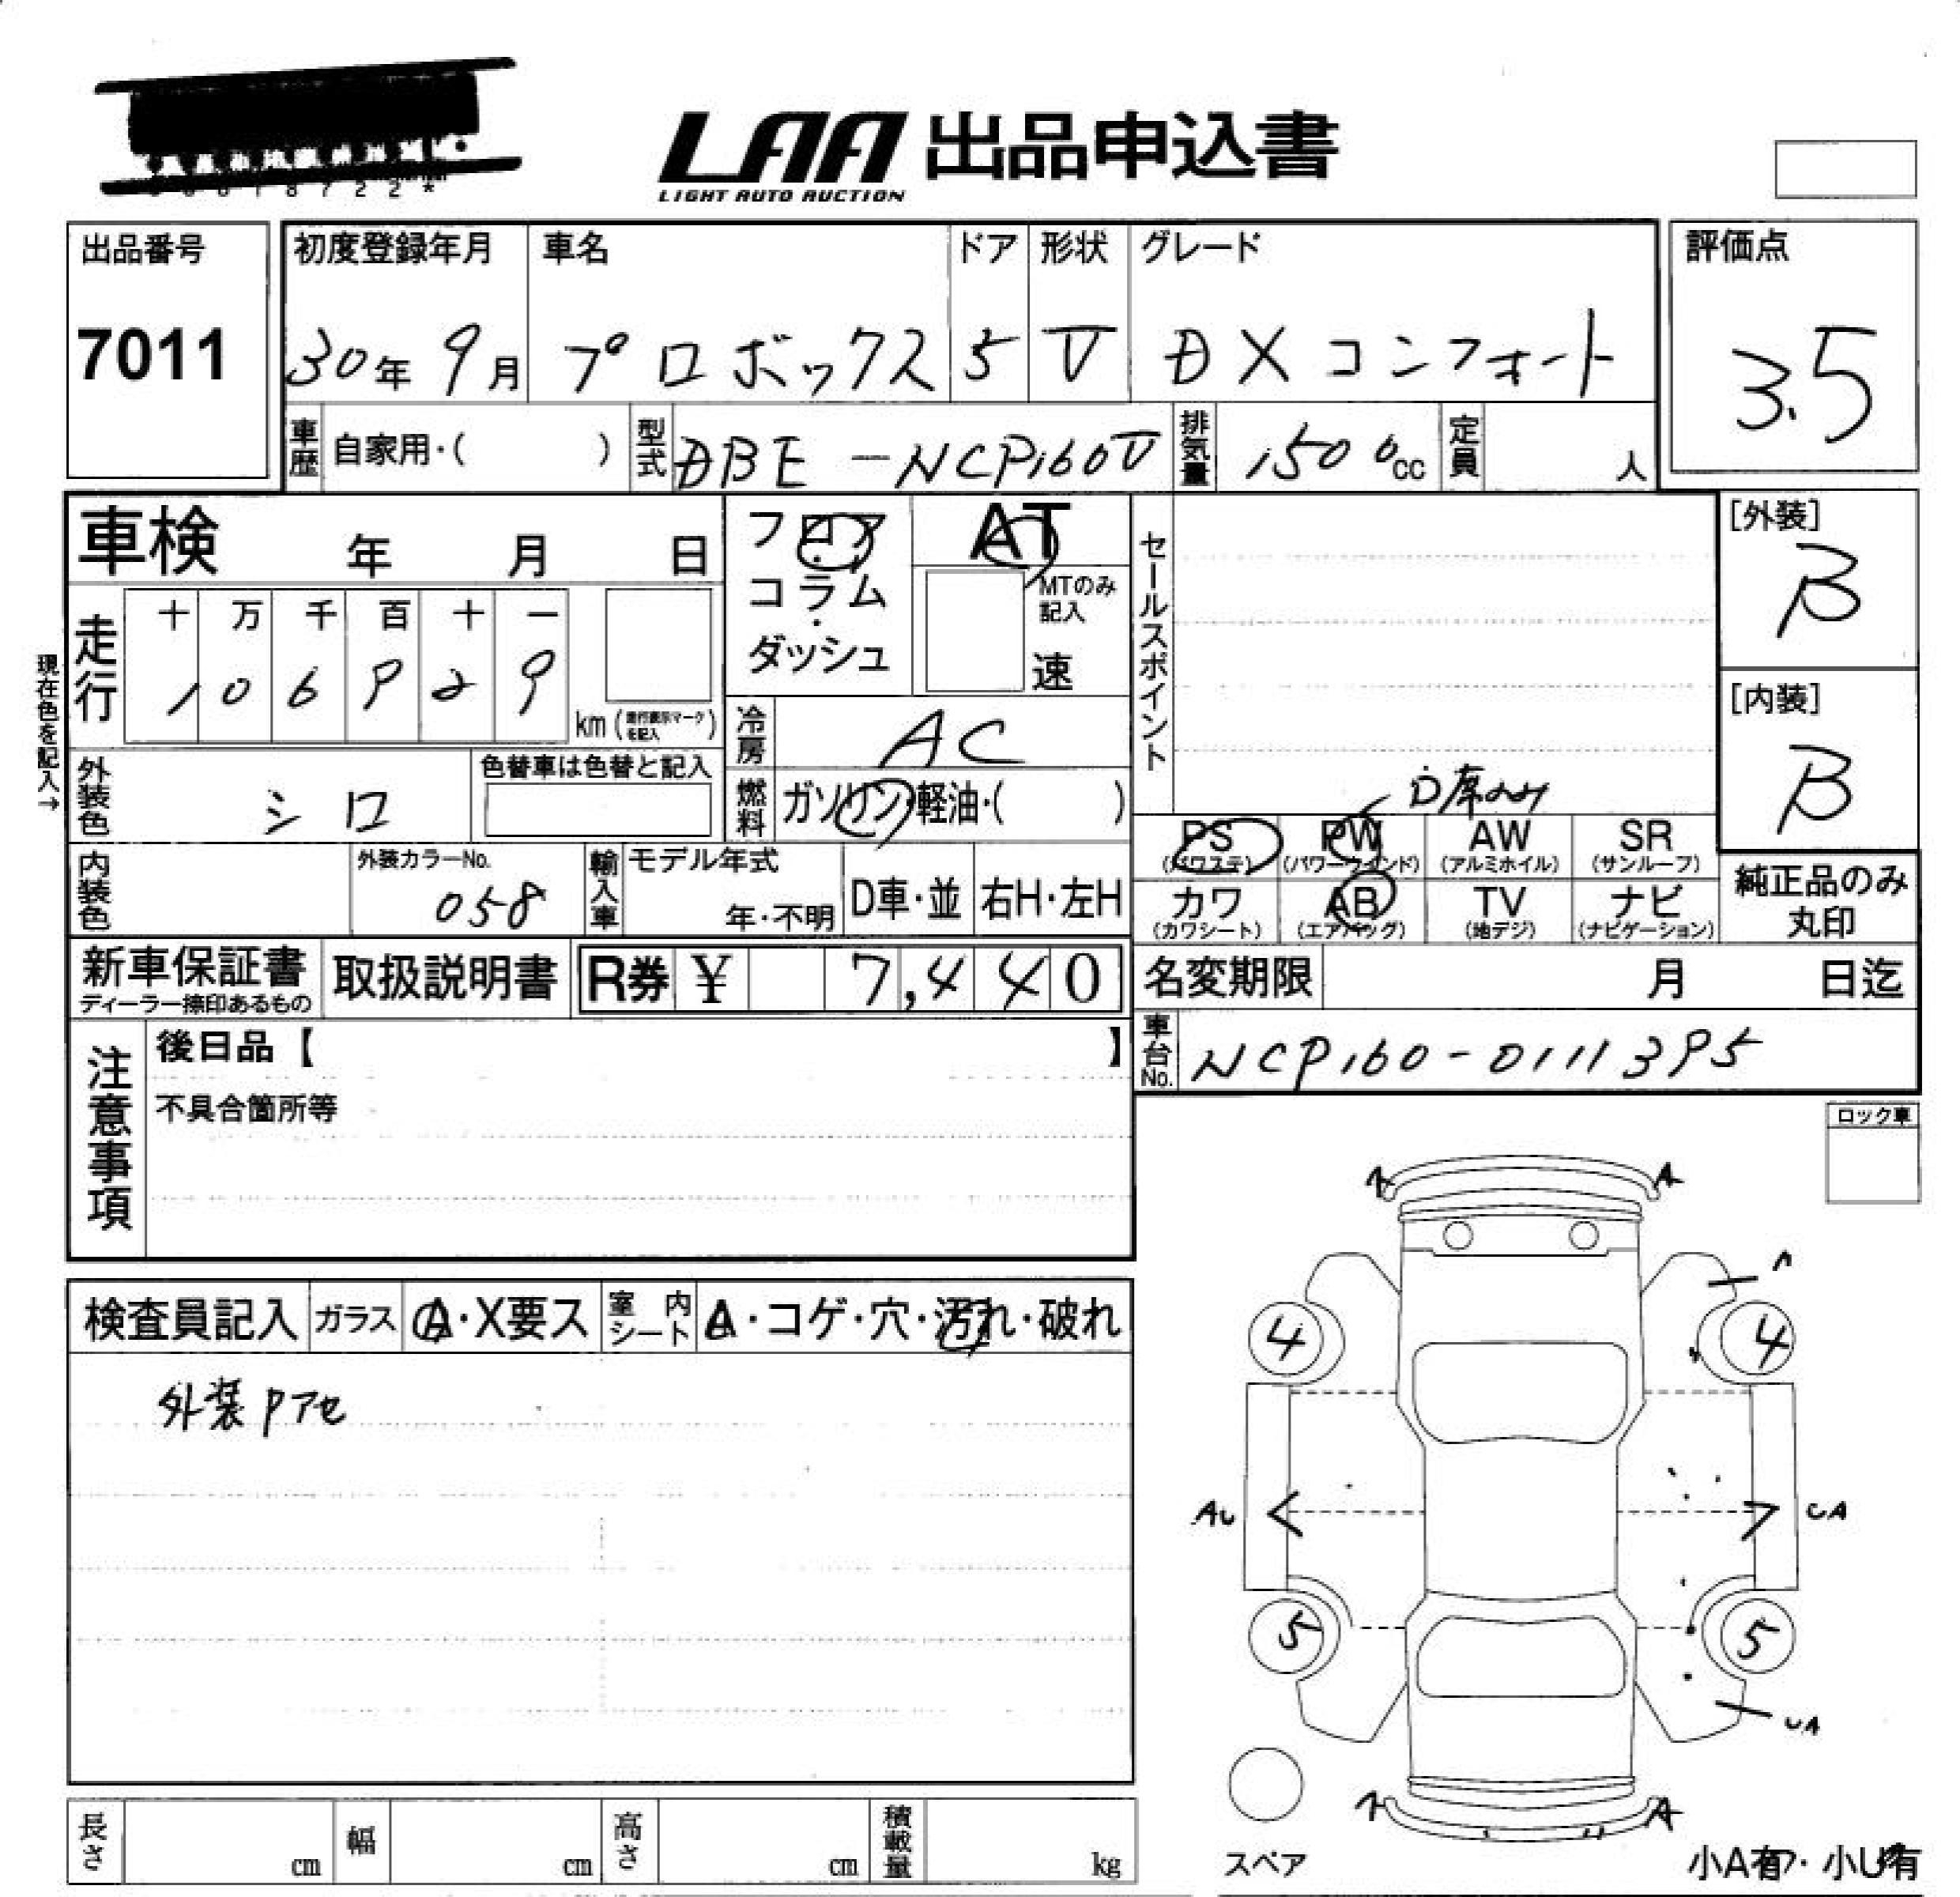 LAA 出品申込書
LIGHT AUTO AUCTION
出品番号
7011
初度登録年月 車名 ドア 形状 グレード
30年 9月 プロボックス 5 V DXコンフォート
評価点
3.5
車歴 自家用・( ) 型式 DBE-NCP160V 排気量 1500cc 定員 人
車検 年 月 日
フロア・コラム・ダッシュ
AT
MTのみ記入
速
セールスポイント
[外装]
B
[内装]
B
現在色を記入→
走行 十 万 千 百 十 一
1 0 6 9 2 9
km (走行表示マークを記入)
冷房 AC
外装色 シロ
色替車は色替と記入
燃料 ガソリン・軽油・( )
D席のみ
PS (パワステ) PW (パワーウインド) AW (アルミホイル) SR (サンルーフ)
カワ (カワシート) AB (エアバッグ) TV (地デジ) ナビ (ナビゲーション)
純正品のみ丸印
内装色 外装カラーNo. 058
輸入車 モデル年式 年・不明 D車・並 右H・左H
新車保証書 ディーラー捺印あるもの
取扱説明書
R券 ¥ 7,440
名変期限 月 日迄
車台No. NCP160-0111395
注意事項
後日品【 】
不具合箇所等
ロック車
検査員記入 ガラス A・X要ス 室内シート A・コゲ・穴・汚れ・破れ
外装Pアセ
A A
A
4 4
AU UA
5 5
UA
A A
スペア
小A有・小U有
長さ cm 幅 cm 高さ cm 積載量 kg